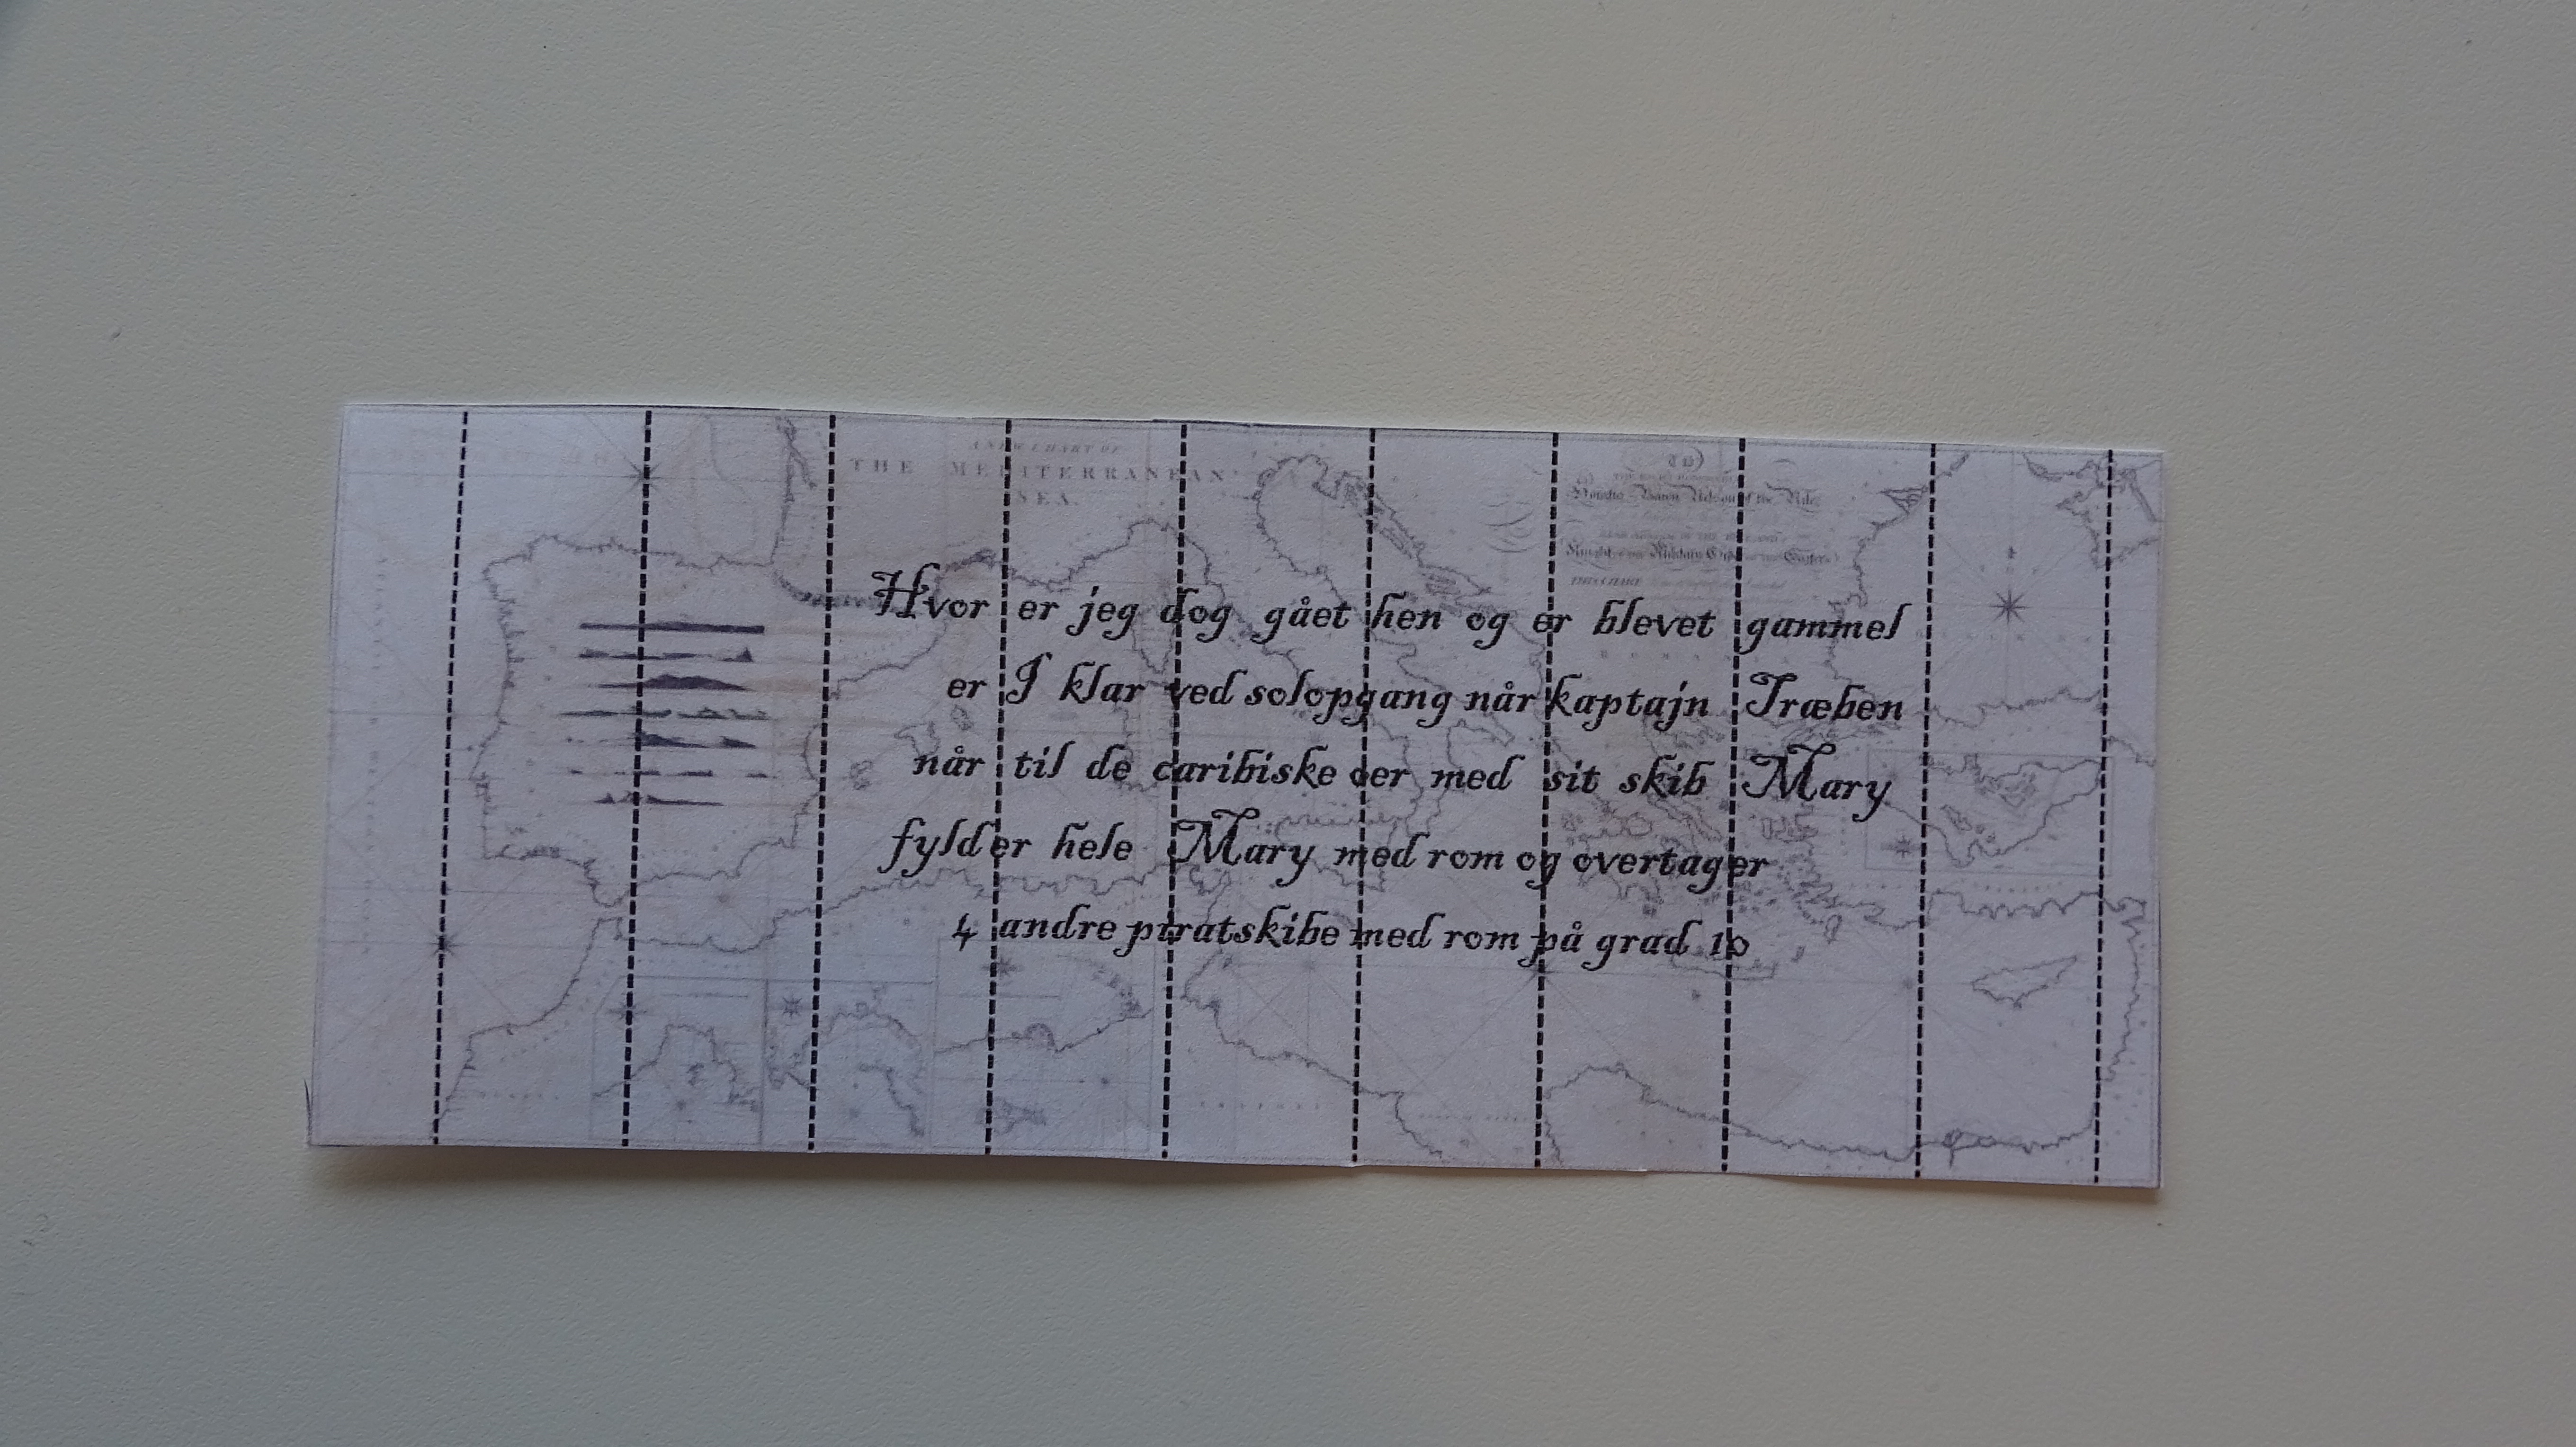 A NEW CHART OF
THE MEDITERRANEAN
SEA.
Hvor er jeg dog gået hen og er blevet gammel
er I klar ved solopgang når kaptajn Træben
når til de caribiske øer med sit skib Mary
fylder hele Mary med rom og overtager
4 andre piratskibe med rom på grad 10